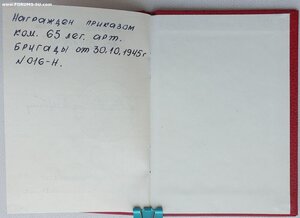 www.FORUMS-su.com
Награжден приказом
ком. 65 лег. арт.
бригады от 30.10.1945г
N 016-Н.